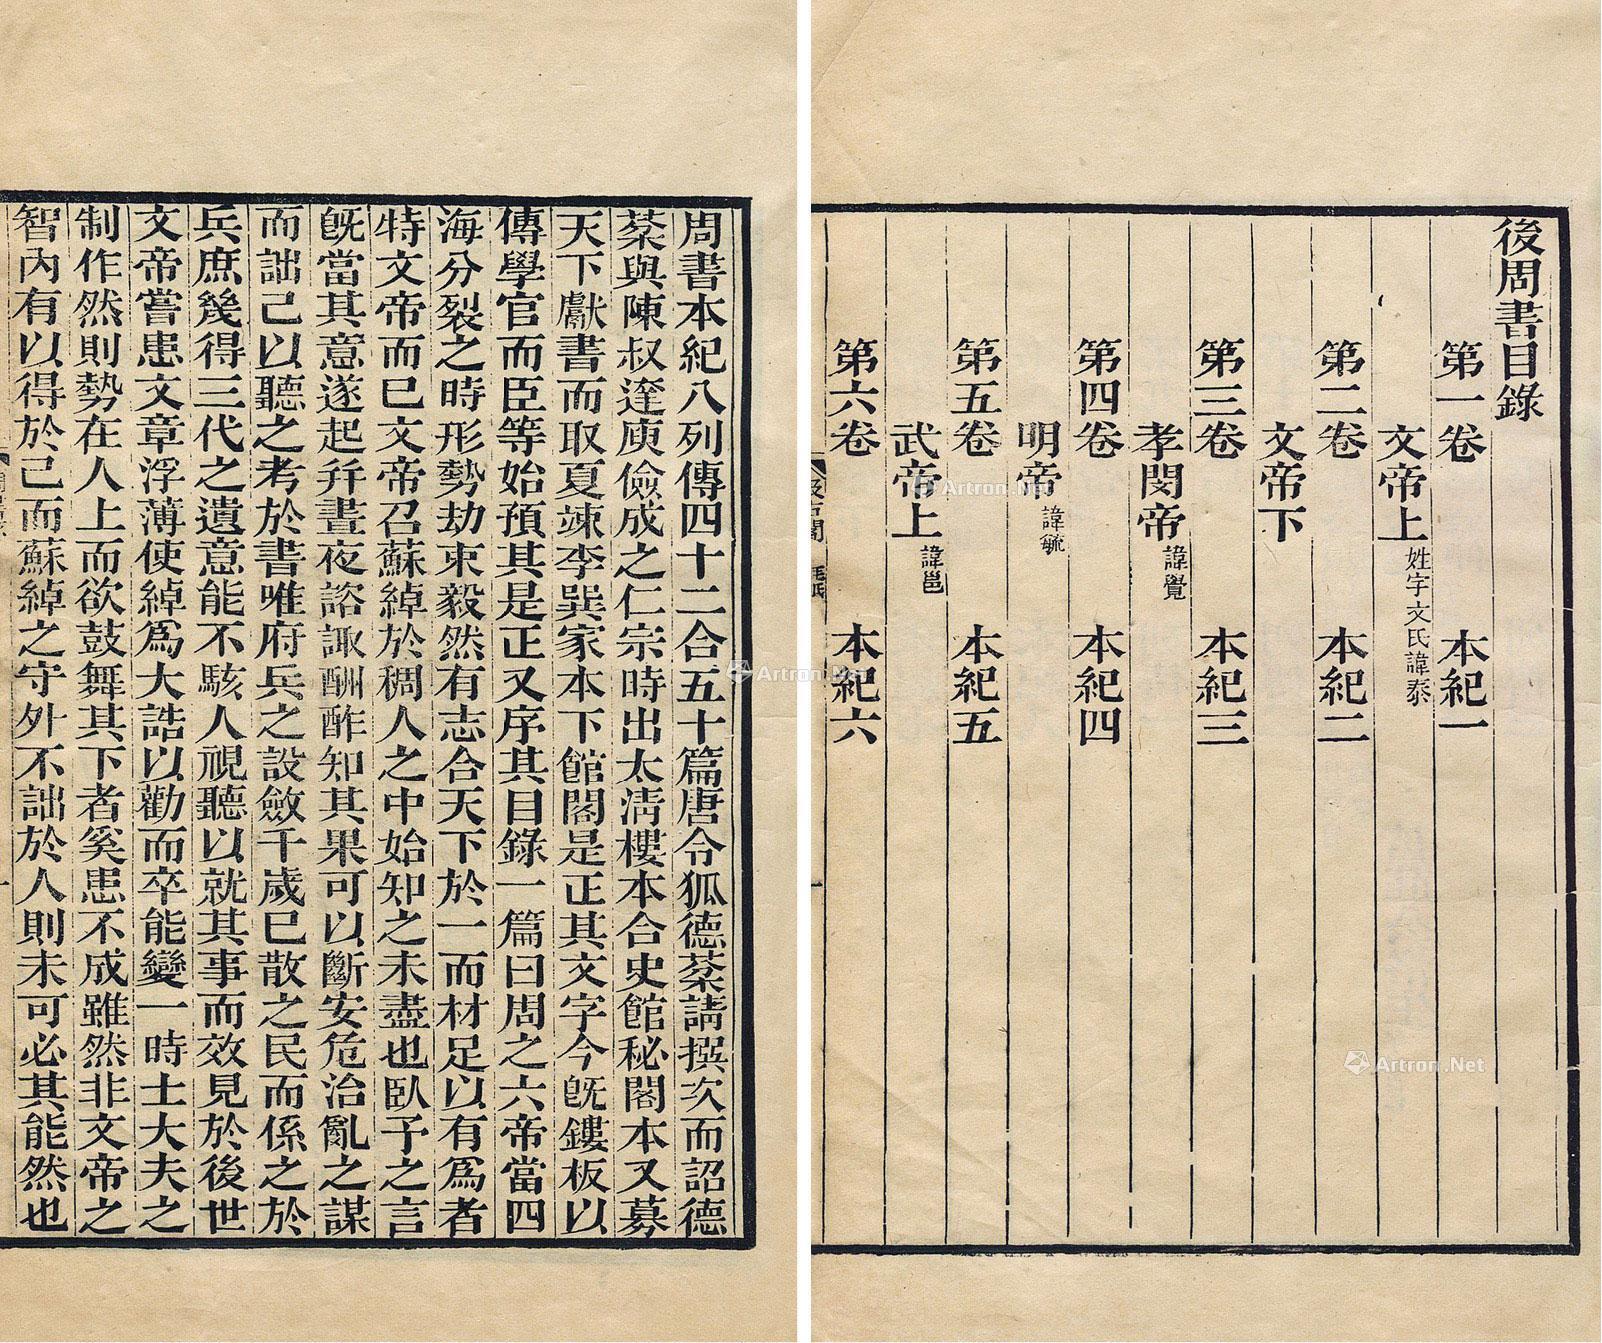 後周書目錄
第一卷 本紀一
文帝上 姓宇文氏諱泰
第二卷 本紀二
文帝下
第三卷 本紀三
孝閔帝 諱覺
第四卷 本紀四
明帝 諱毓
第五卷 本紀五
武帝上 諱邕
第六卷 本紀六
汲古閣 毛氏
周書本紀八列傳四十二合五十篇唐令狐德棻請撰次而詔德
棻與陳叔達庾儉成之仁宗時出太淸樓本合史館秘閣本又募
天下獻書而取夏竦李巽家本下館閣是正其文字今旣鏤板以
傳學官而臣等始預其是正又序其目錄一篇曰周之六帝當四
海分裂之時形勢劫束毅然有志合天下於一而材足以有爲者
特文帝而已文帝召蘇綽於稠人之中始知之未盡也臥予之言
旣當其意遂起幷晝夜諮諏酬酢知其果可以斷安危治亂之謀
而詘己以聽之考於書唯府兵之設斂千歲已散之民而係之於
兵庶幾得三代之遺意能不駭人視聽以就其事而效見於後世
文帝嘗患文章浮薄使綽爲大誥以勸而卒能變一時士大夫之
制作然則勢在人上而欲鼓舞其下者奚患不成雖然非文帝之
智內有以得於己而蘇綽之守外不詘於人則未可必其能然也
Artron.Net
Artron.Net
Artron.Net